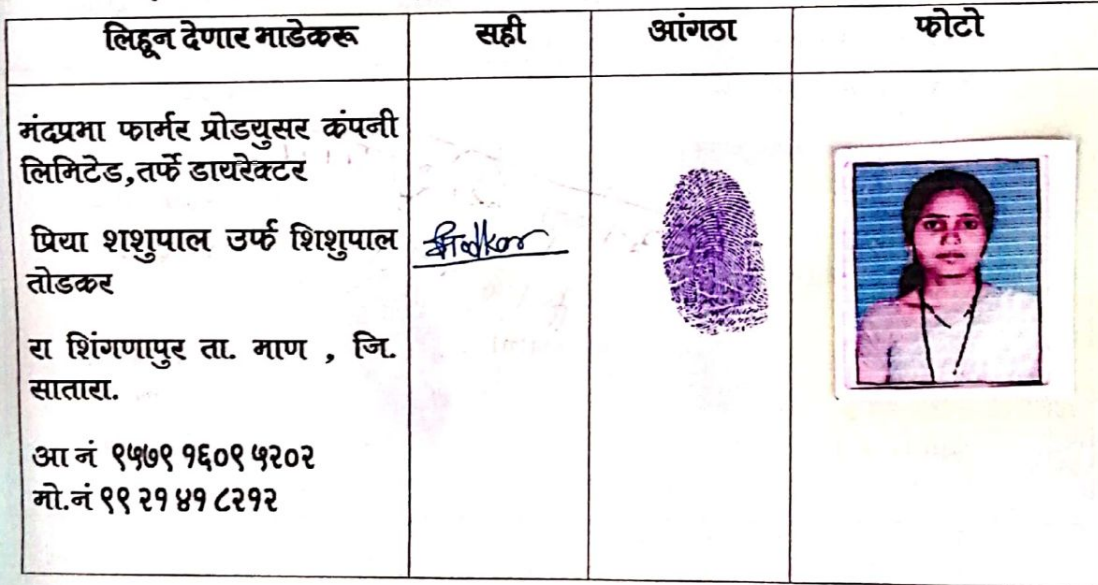 लिहून देणार भाडेकरू सही आंगठा फोटो
मंदप्रभा फार्मर प्रोडयुसर कंपनी
लिमिटेड,तर्फे डायरेक्टर
प्रिया शशुपाल उर्फ शिशुपाल
तोडकर
रा शिंगणापुर ता. माण , जि.
सातारा.
आ नं ९५७९ १६०९ ५२०२
मो.नं ९९ २१ ४१ ८२१२